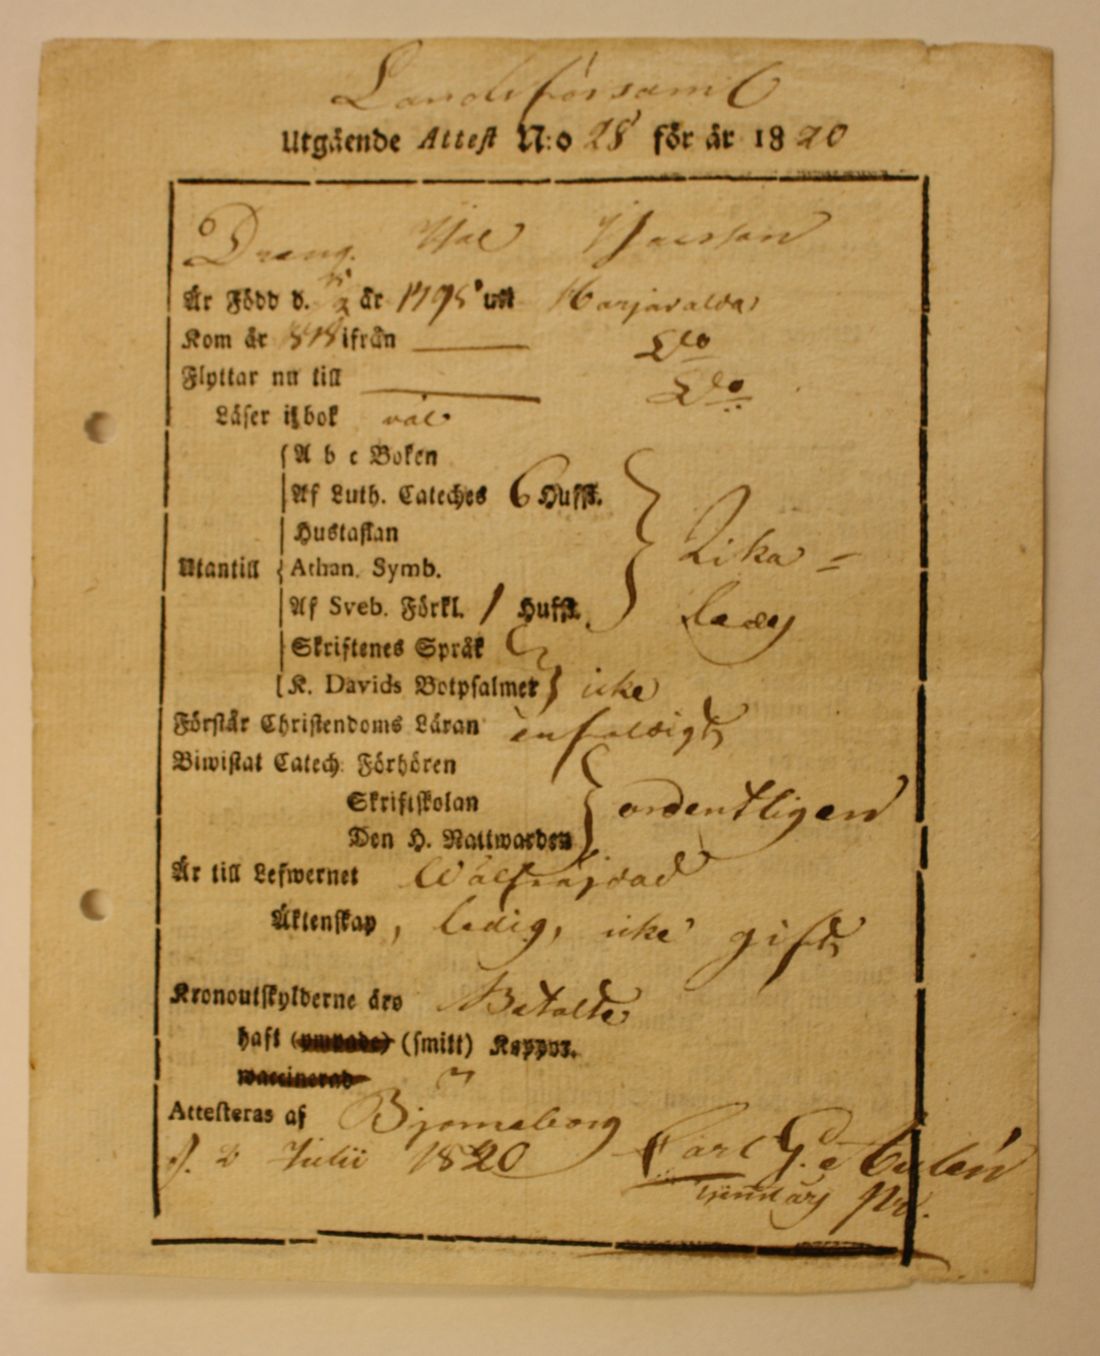 Landsförsaml
Utgående Attest N:o 28 för år 1820
Dräng Isac Isacsson
År Född d. år 1795 uti Harjavalda
Kom år 1818 ifrån —— Do
Flyttar nu till —— Do
Läser i bok väl
A b c Boken
Af Luth. Cateches 6 Hufst.
Hustaflan
Utantill Athan. Symb. Lika =
Af Sveb. Förkl. 1 Hufst. ledes
Skriftenes Språk
K. Davids Botpsalmer icke
Förstår Christendoms Läran enfaldigt
Biwistat Catech. Förhören
Skriftskolan ordentligen
Den H. Nattwarden
Är till Lefwernet Wälfräjdad
Äktenskap, ledig, icke gift
Kronoutskylderne äro Betalte
haft (ympade) (smitt) Koppor.
waccinerad
Attesteras af Björneborg
d. 2 Julii 1820 Carl G.